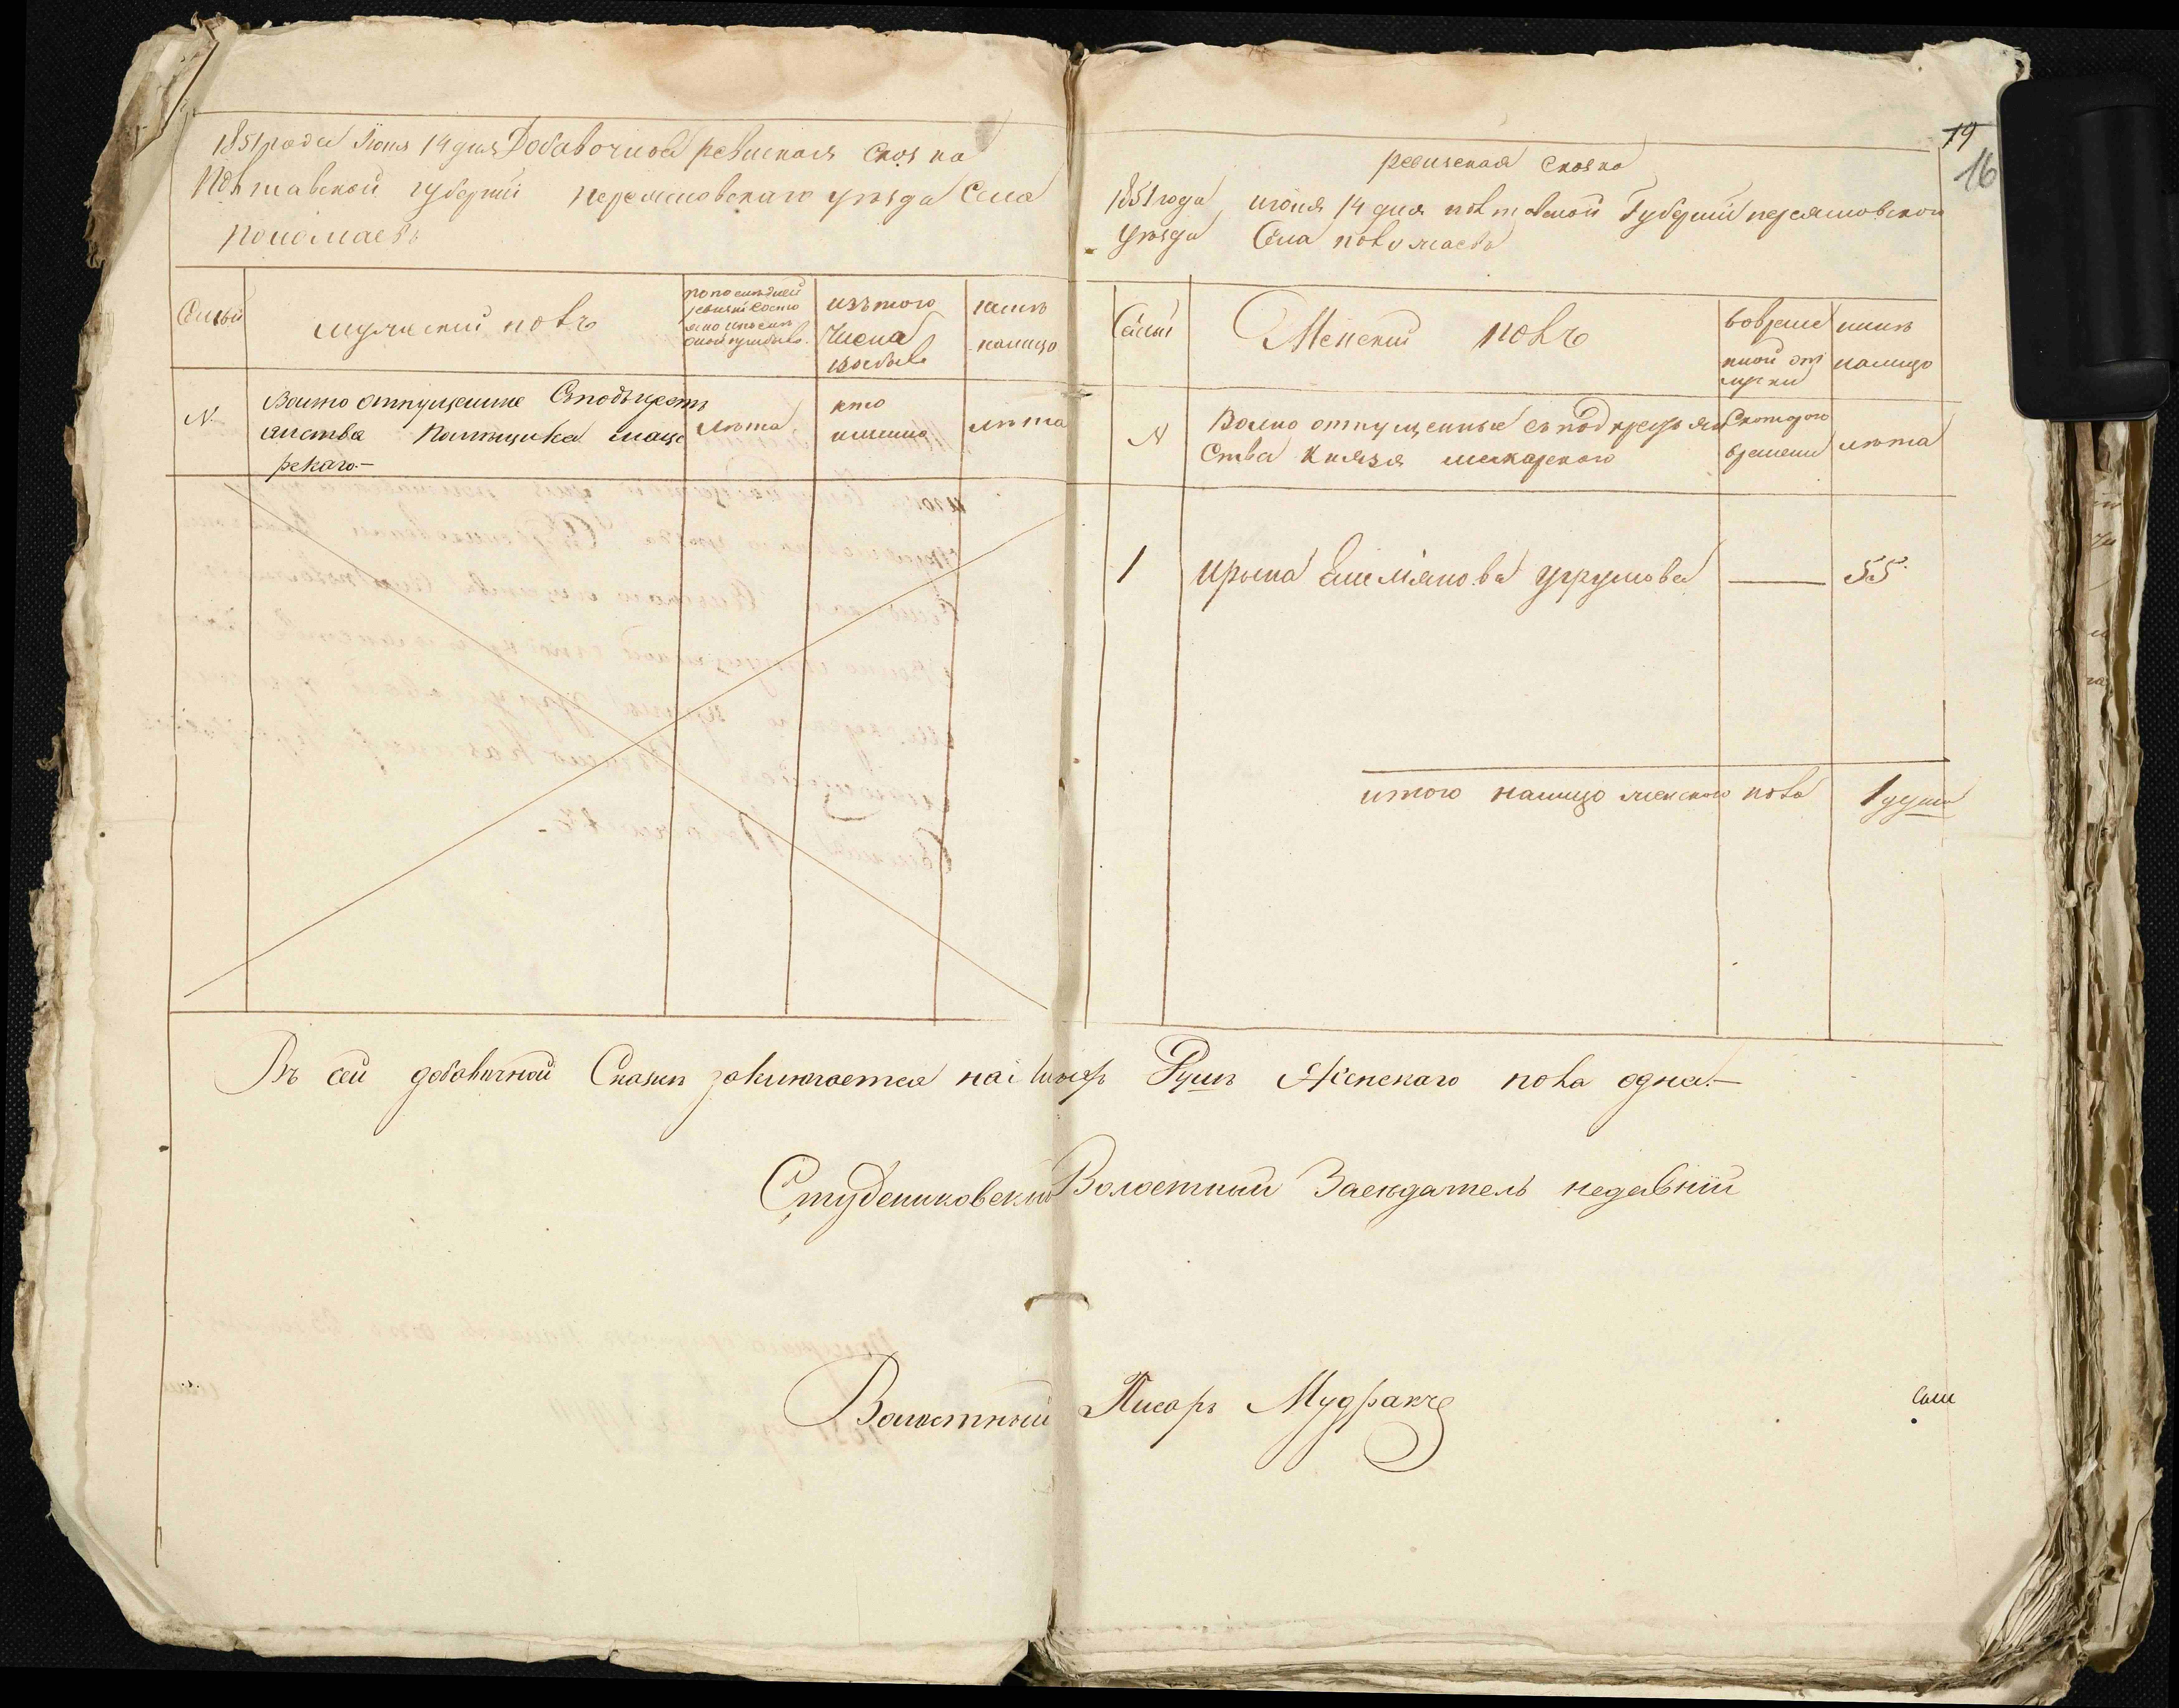 1851 года Іюня 14 дня Добавочноя ревиская Сказка
Полтавской губерніи переясловскаго уезда Села
Семьи
мужеский полъ
по последней
ревизіи состо
изъ того
числа
выбыло
ныне
налицо
№
Вольно отпущенные Сподъкресть
янства Помещика
лета
кто
имянно
лета
79
16
ревизская Сказка
1851 года июня 14 дня полтавской Губерніи переясловскои
уезда Села
Семьи
Женский полъ
вовреме
нной от
лучки
ныне
налицо
№
Волно отпущенные съподкрестьян
Ства Князя
Скоторого
времени
лета
1 Ирына Емелянова Угрумова — 55
итого налицо женского пола 1 душа
Въ сей добавочной Сказки заключается налицо Душъ Женскаго пола одна.—
Студениковский Волостный Заседатель недавній
Волостный Писарь Мудракъ